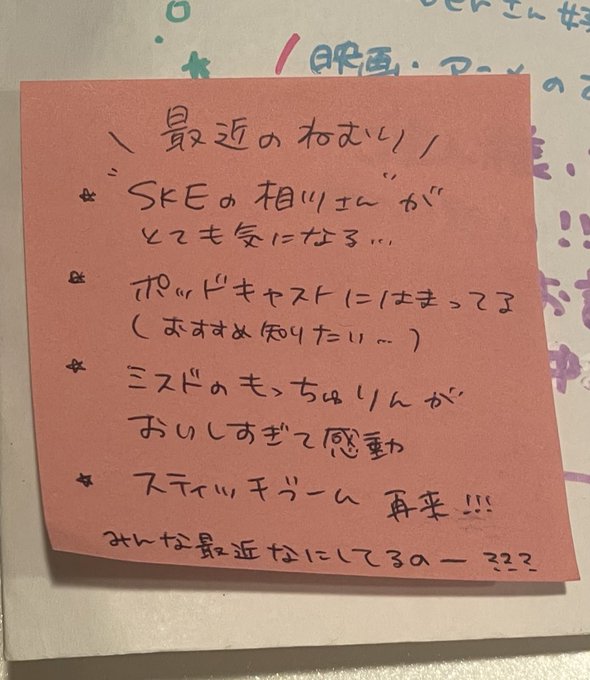 映画・アニメの
\ 最近のねむり /
☆ "SKEの相川さん"が
とても気になる…
☆ ポッドキャストにはまってる
(おすすめ知りたい…)
☆ ミスドのもっちゅりんが
おいしすぎて感動
☆ スティッチブーム 再来!!!
みんな最近なにしてるのー???